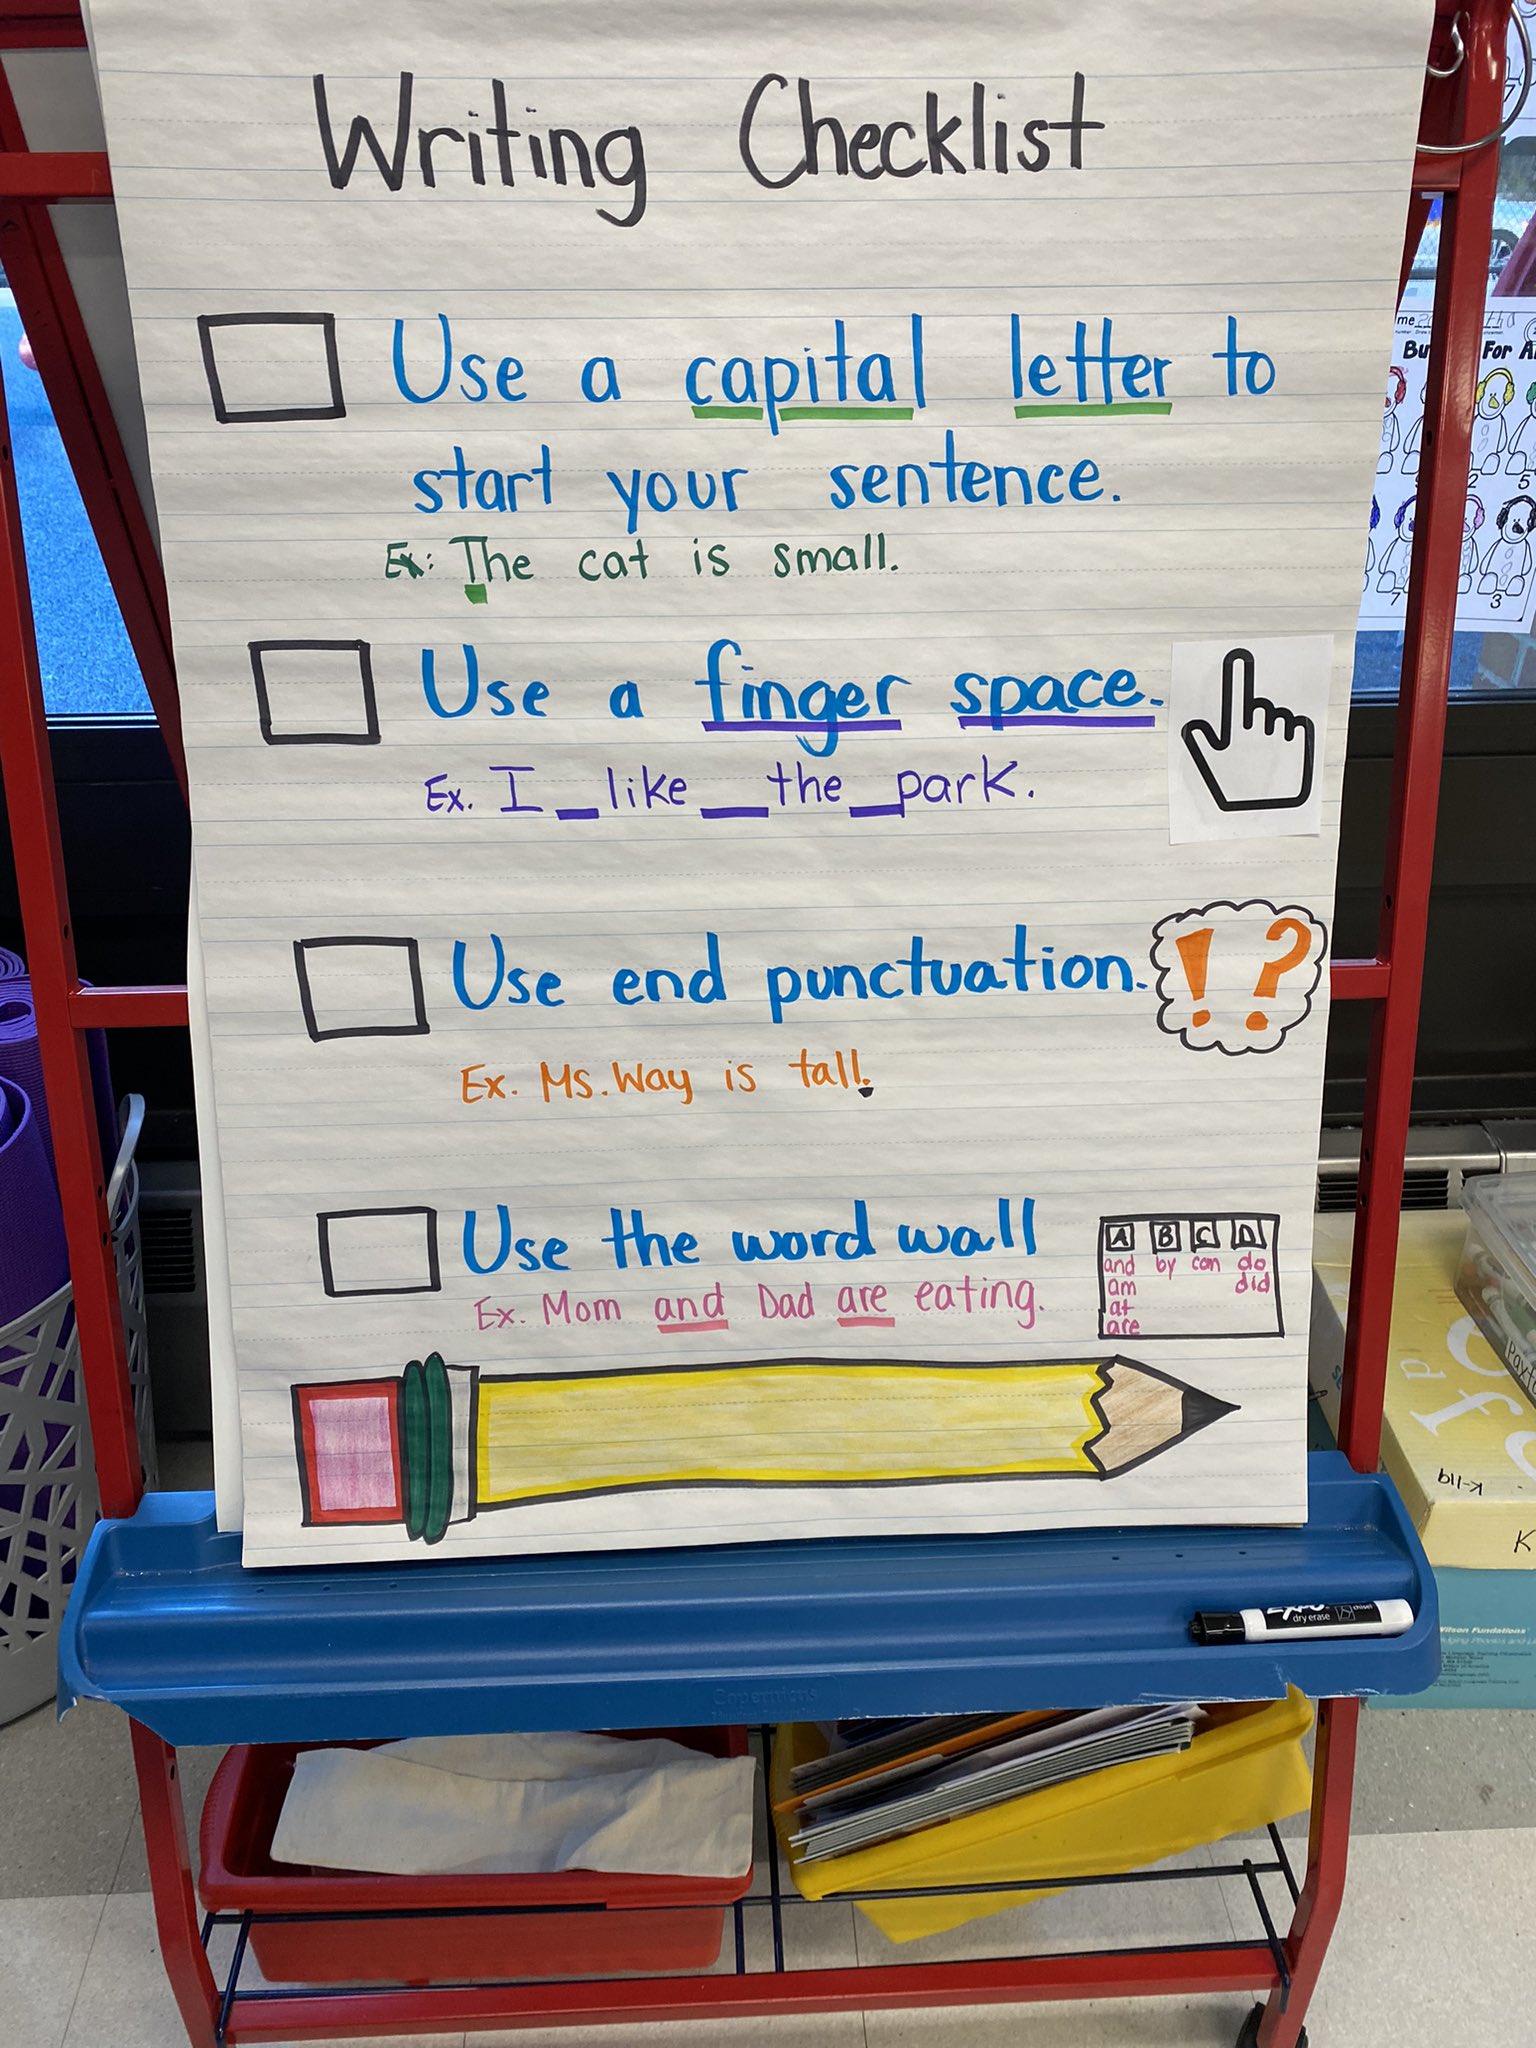 Writing Checklist
Use a capital letter to
start your sentence.
Ex: The cat is small.
Use a finger space.
Ex. I _ like _ the _ park.
Use end punctuation.
! ?
Ex. Ms. Way is tall.
Use the word wall
Ex. Mom and Dad are eating.
A B C D
and by can do
am did
at
are
me
For
2 5
7 3
K-119
K
EXPO
dry erase chisel
Wilson Fundations
Copernicus